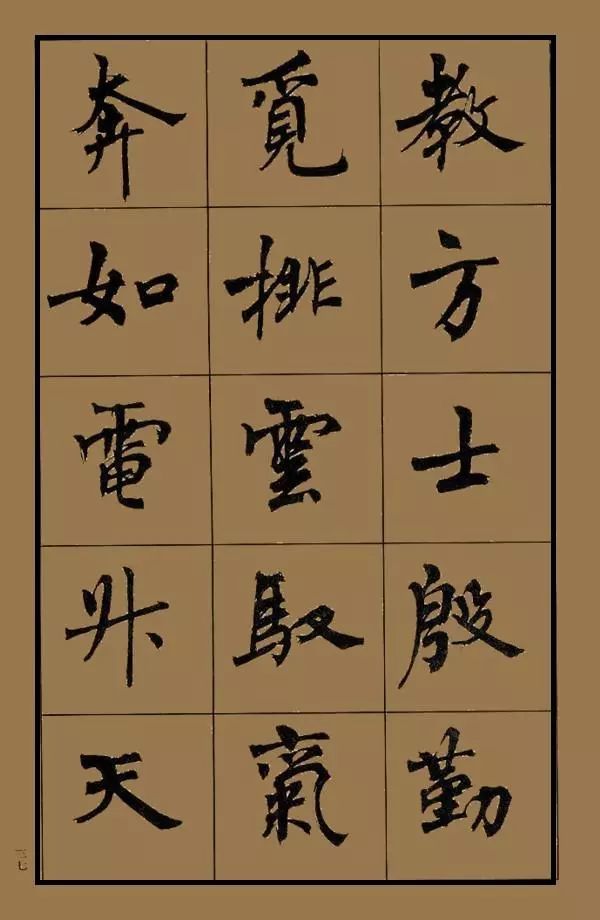 教方士殷勤
覓排雲馭氣
奔如電升天
三七